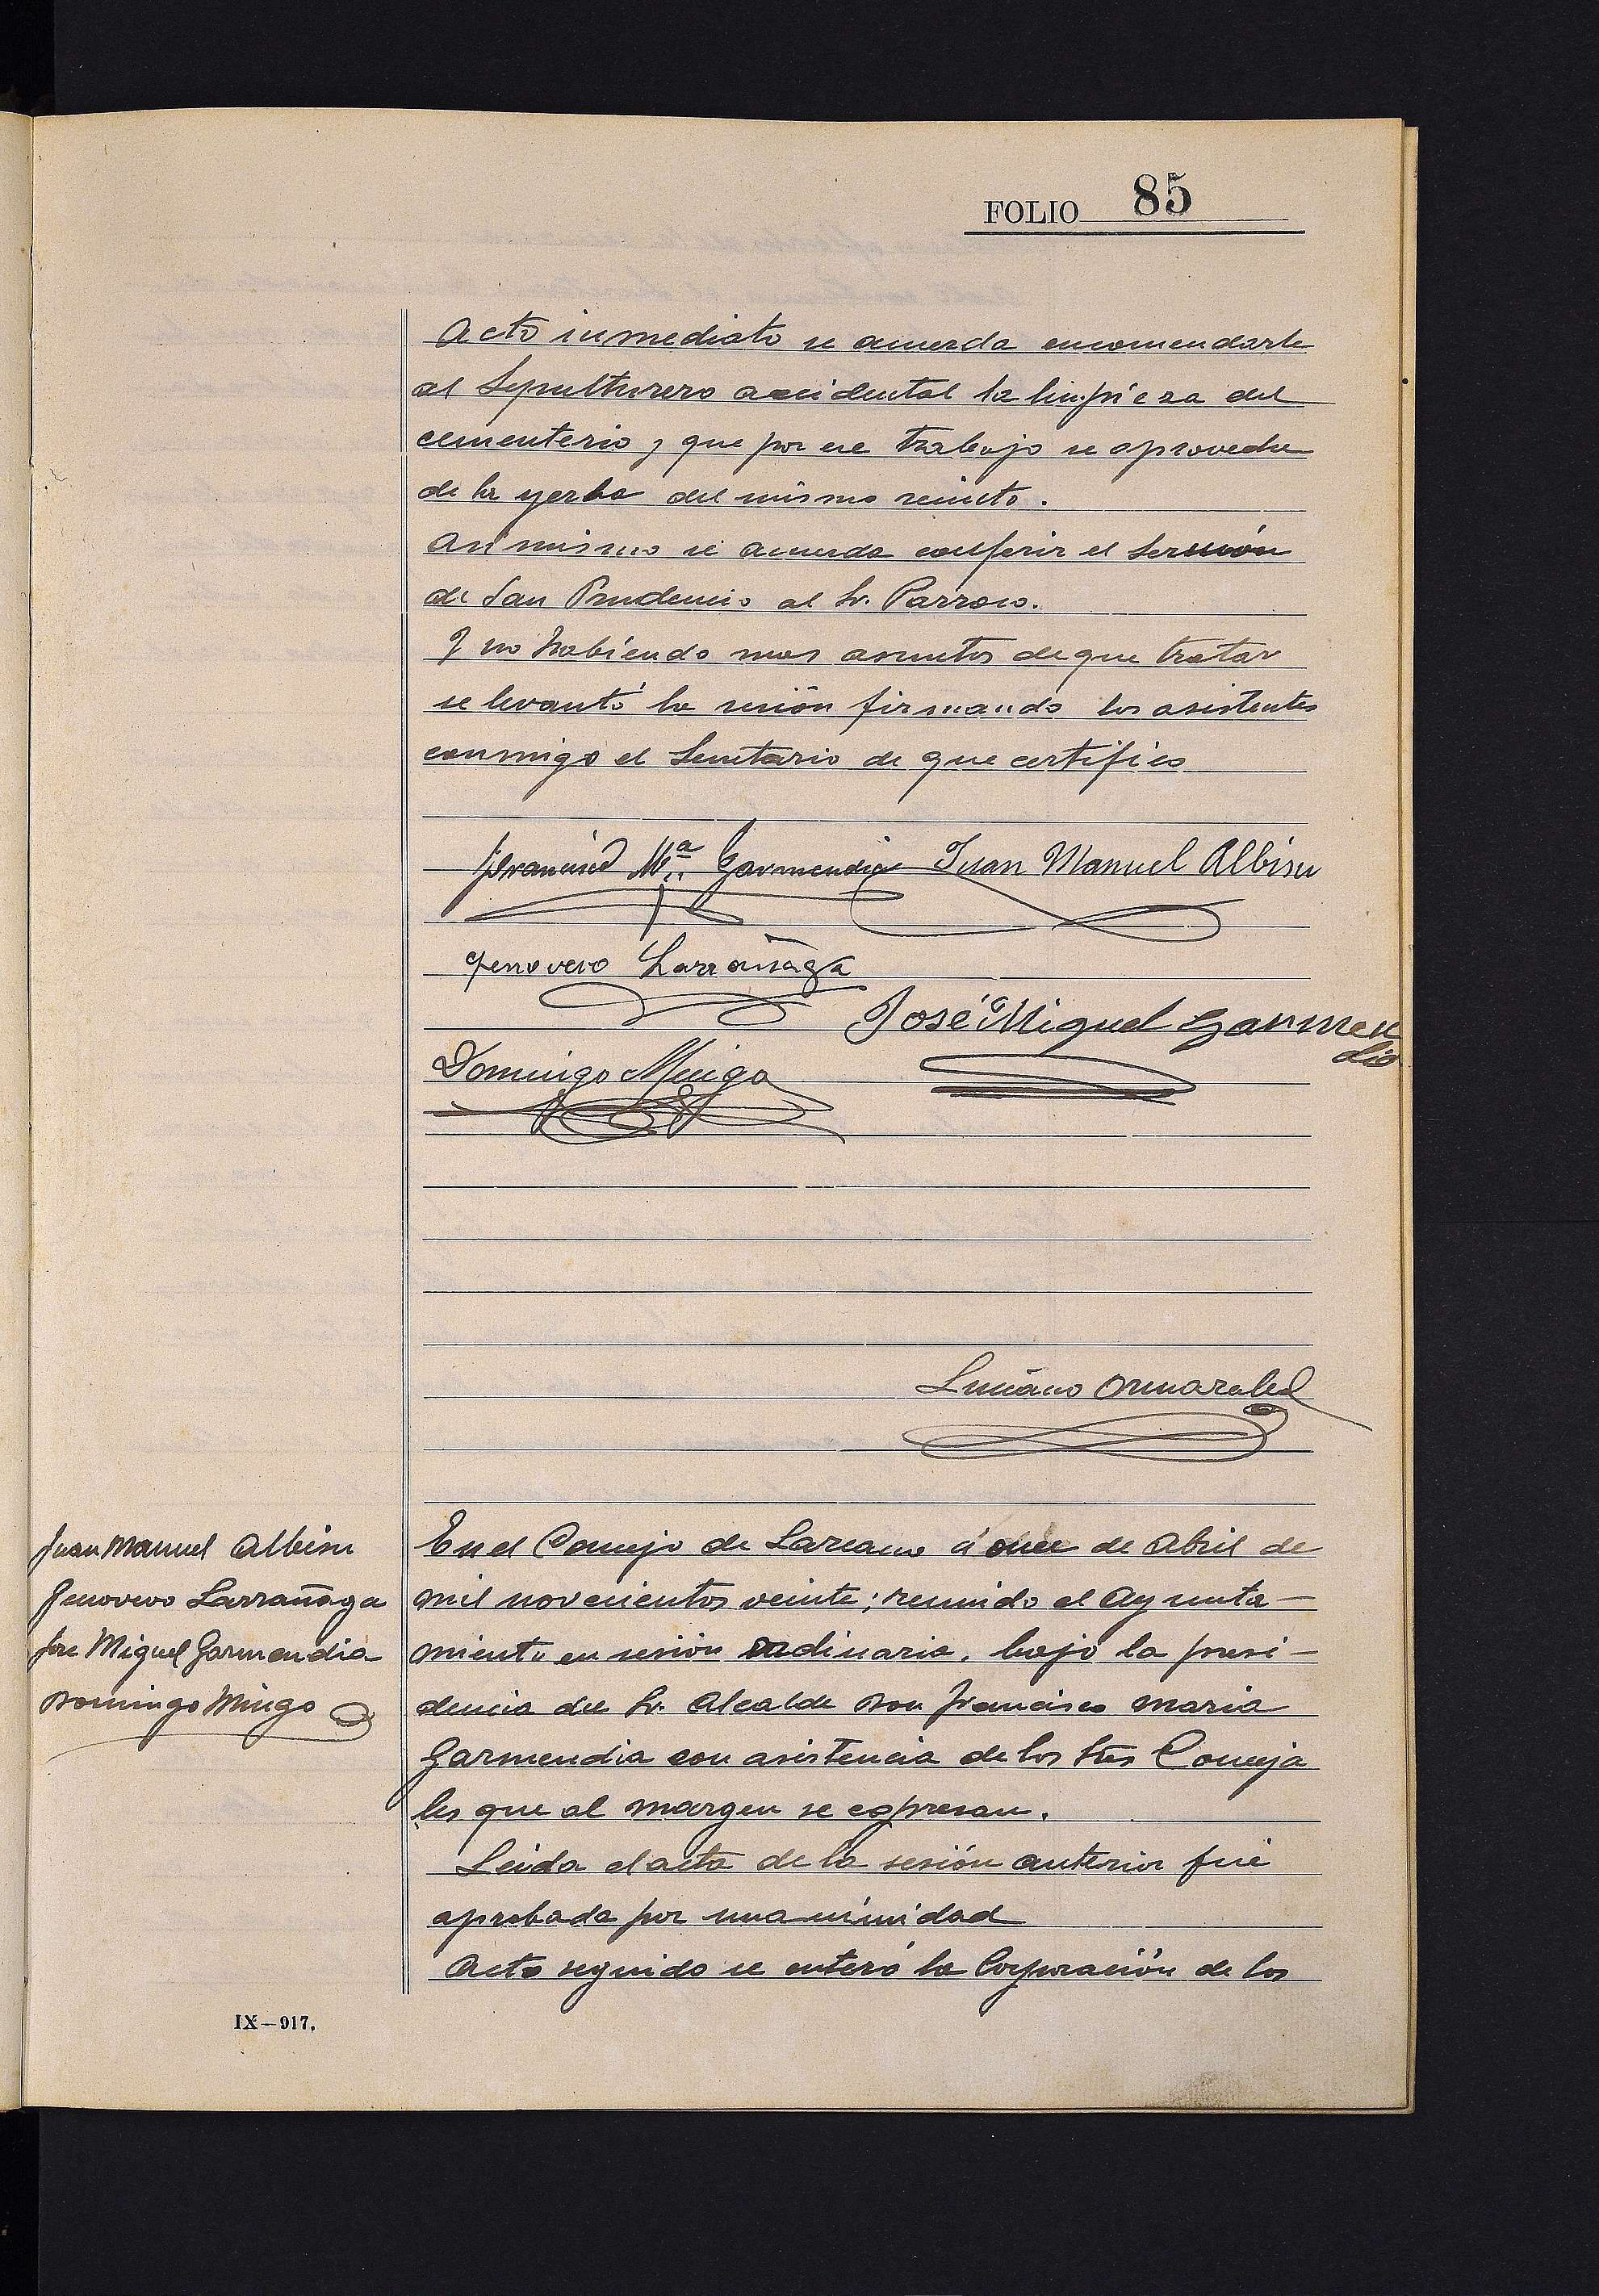 FOLIO 85
Acto inmediato se acuerda encomendarle
al Sepulturero accidental la limpieza del
cementerio y que por ese trabajo se aproveche
de la yerba del mismo recinto.
Asi mismo se acuerda conferir el Sermón
de San Prudencio al Sr. Parroco.
Y no habiendo mas asuntos de que tratar
se levantó la sesión firmando los asistentes
conmigo el Secretario de que certifico
Francisco Mª Garmendia Juan Manuel Albisu
Genovevo Larrañaga
José Miguel Garmen
dia
Domingo Mugo
Luciano
Juan Manuel Albisu
Genovevo Larrañaga
Jose Miguel Garmendia
Domingo Mugo
En el Concejo de Lazcano á once de Abril de
mil novecientos veinte; reunido el Ayunta-
miento en sesión ordinaria, bajo la presi-
dencia del Sr. Alcalde Don Francisco Maria
Garmendia con asistencia de los Sres Conceja
les que al margen se expresan.
Leida el acta de la sesión anterior fué
aprobada por unanimidad
Acto seguido se enteró la Corporación de los
IX—917.